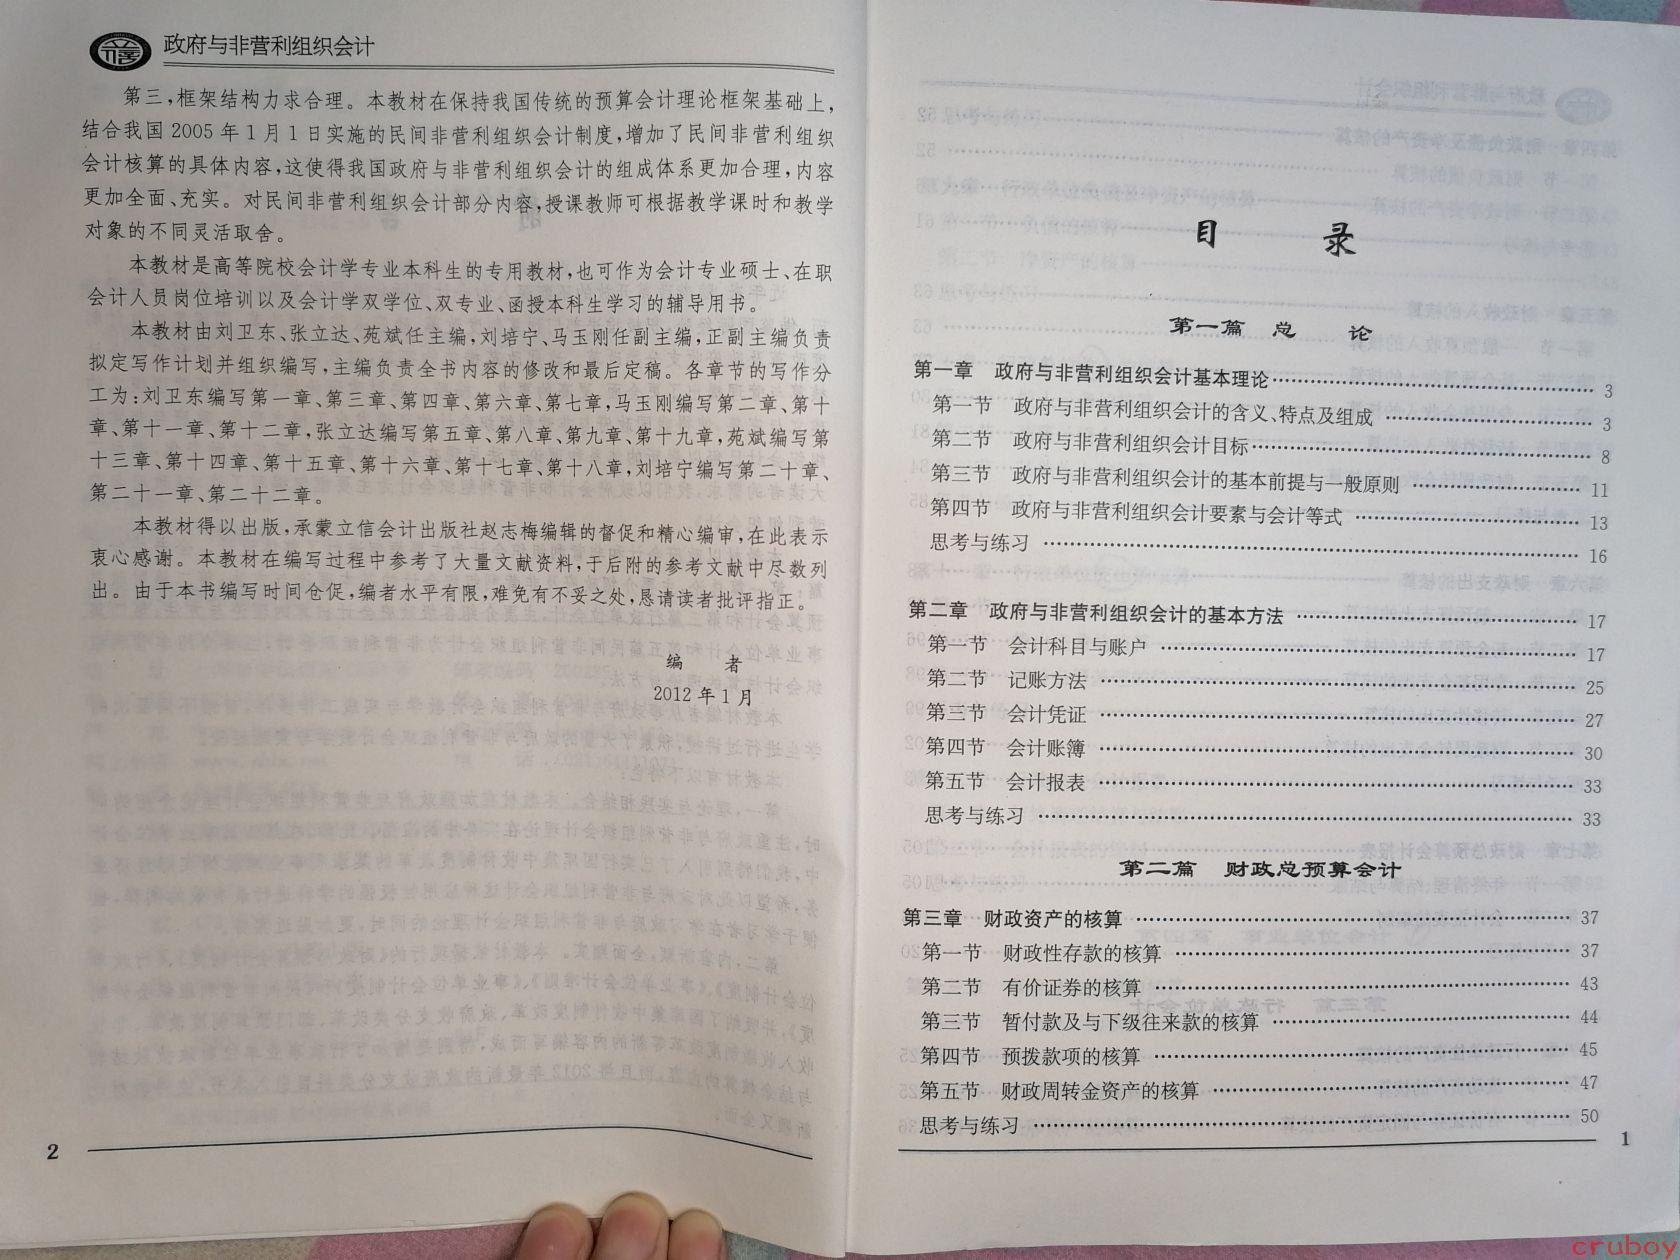 政府与非营利组织会计
第三,框架结构力求合理。本教材在保持我国传统的预算会计理论框架基础上,
结合我国 2005 年 1 月 1 日实施的民间非营利组织会计制度,增加了民间非营利组织
会计核算的具体内容,这使得我国政府与非营利组织会计的组成体系更加合理,内容
更加全面、充实。对民间非营利组织会计部分内容,授课教师可根据教学课时和教学
对象的不同灵活取舍。
本教材是高等院校会计学专业本科生的专用教材,也可作为会计专业硕士、在职
会计人员岗位培训以及会计学双学位、双专业、函授本科生学习的辅导用书。
本教材由刘卫东、张立达、苑斌任主编,刘培宁、马玉刚任副主编,正副主编负责
拟定写作计划并组织编写,主编负责全书内容的修改和最后定稿。各章节的写作分
工为:刘卫东编写第一章、第三章、第四章、第六章、第七章,马玉刚编写第二章、第十
章、第十一章、第十二章,张立达编写第五章、第八章、第九章、第十九章,苑斌编写第
十三章、第十四章、第十五章、第十六章、第十七章、第十八章,刘培宁编写第二十章、
第二十一章、第二十二章。
本教材得以出版,承蒙立信会计出版社赵志梅编辑的督促和精心编审,在此表示
衷心感谢。本教材在编写过程中参考了大量文献资料,于后附的参考文献中尽数列
出。由于本书编写时间仓促,编者水平有限,难免有不妥之处,恳请读者批评指正。
编　者
2012 年 1 月
2
目　录
第一篇　总　论
第一章　政府与非营利组织会计基本理论 …… 3
第一节　政府与非营利组织会计的含义、特点及组成 …… 3
第二节　政府与非营利组织会计目标 …… 8
第三节　政府与非营利组织会计的基本前提与一般原则 …… 11
第四节　政府与非营利组织会计要素与会计等式 …… 13
思考与练习 …… 16
第二章　政府与非营利组织会计的基本方法 …… 17
第一节　会计科目与账户 …… 17
第二节　记账方法 …… 25
第三节　会计凭证 …… 27
第四节　会计账簿 …… 30
第五节　会计报表 …… 33
思考与练习 …… 33
第二篇　财政总预算会计
第三章　财政资产的核算 …… 37
第一节　财政性存款的核算 …… 37
第二节　有价证券的核算 …… 43
第三节　暂付款及与下级往来款的核算 …… 44
第四节　预拨款项的核算 …… 45
第五节　财政周转金资产的核算 …… 47
思考与练习 …… 50
1
cruboy